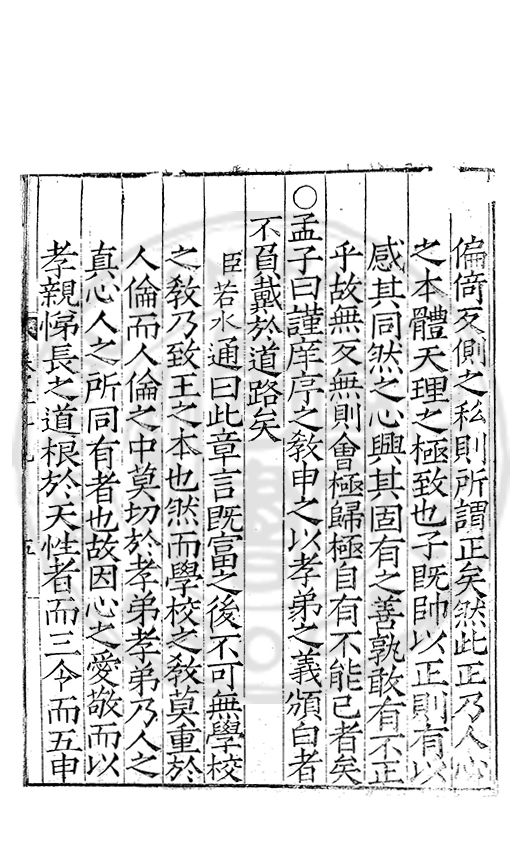 偏倚反側之私則所謂正矣然此正乃人心
之本體天理之極致也子既帥以正則有以
感其同然之心興其固有之善孰敢有不正
乎故無反無則會極歸極自有不能已者矣
○孟子曰謹庠序之教申之以孝弟之義頒白者
不負戴於道路矣
臣若水通曰此章言既富之後不可無學校
之教乃致王之本也然而學校之教莫重於
人倫而人倫之中莫切於孝弟孝弟乃人之
真心人之所同有者也故因心之愛敬而以
孝親悌長之道根於天性者而三令而五申